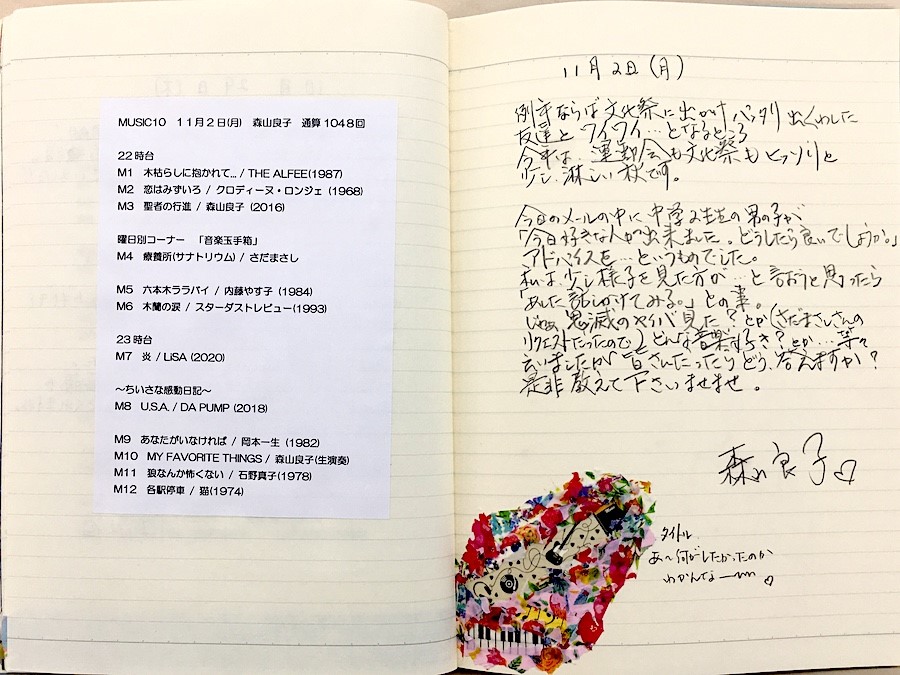 MUSIC10 11月2日(月) 森山良子 通算1048回
22時台
M1 木枯らしに抱かれて… / THE ALFEE(1987)
M2 恋はみずいろ / クロディーヌ・ロンジェ (1968)
M3 聖者の行進 / 森山良子 (2016)
曜日別コーナー 「音楽玉手箱」
M4 療養所(サナトリウム) / さだまさし
M5 六本木ララバイ / 内藤やす子 (1984)
M6 木蘭の涙 / スターダストレビュー(1993)
23時台
M7 炎 / LiSA (2020)
～ちいさな感動日記～
M8 U.S.A. / DA PUMP (2018)
M9 あなたがいなければ / 岡本一生 (1982)
M10 MY FAVORITE THINGS / 森山良子(生演奏)
M11 狼なんか怖くない / 石野真子(1978)
M12 各駅停車 / 猫(1974)
11月2日(月)
例年ならば文化祭に出かけバッタリ出くわした
友達とワイワイ…となるところ
今年は、運動会も文化祭もヒッソリと
少し淋しい秋です。
今日のメールの中に中学2年生の男の子が
「今日好きな人が出来ました。どうしたら良いでしょうか。」
アドバイスを…というものでした。
私は、少し様子を見た方が…と言おうと思ったら
「あした話しかけてみる。」との事。
じゃあ鬼滅のヤイバ見た？とか(さださんの
リクエストだったので)どんな音楽好き？とか…等々
言いましたが皆さんだったらどう答えますか？
是非教えて下さいませませ。
森山良子♡
タイトル
あ～何がしたかったのか
わかんなーい ♡